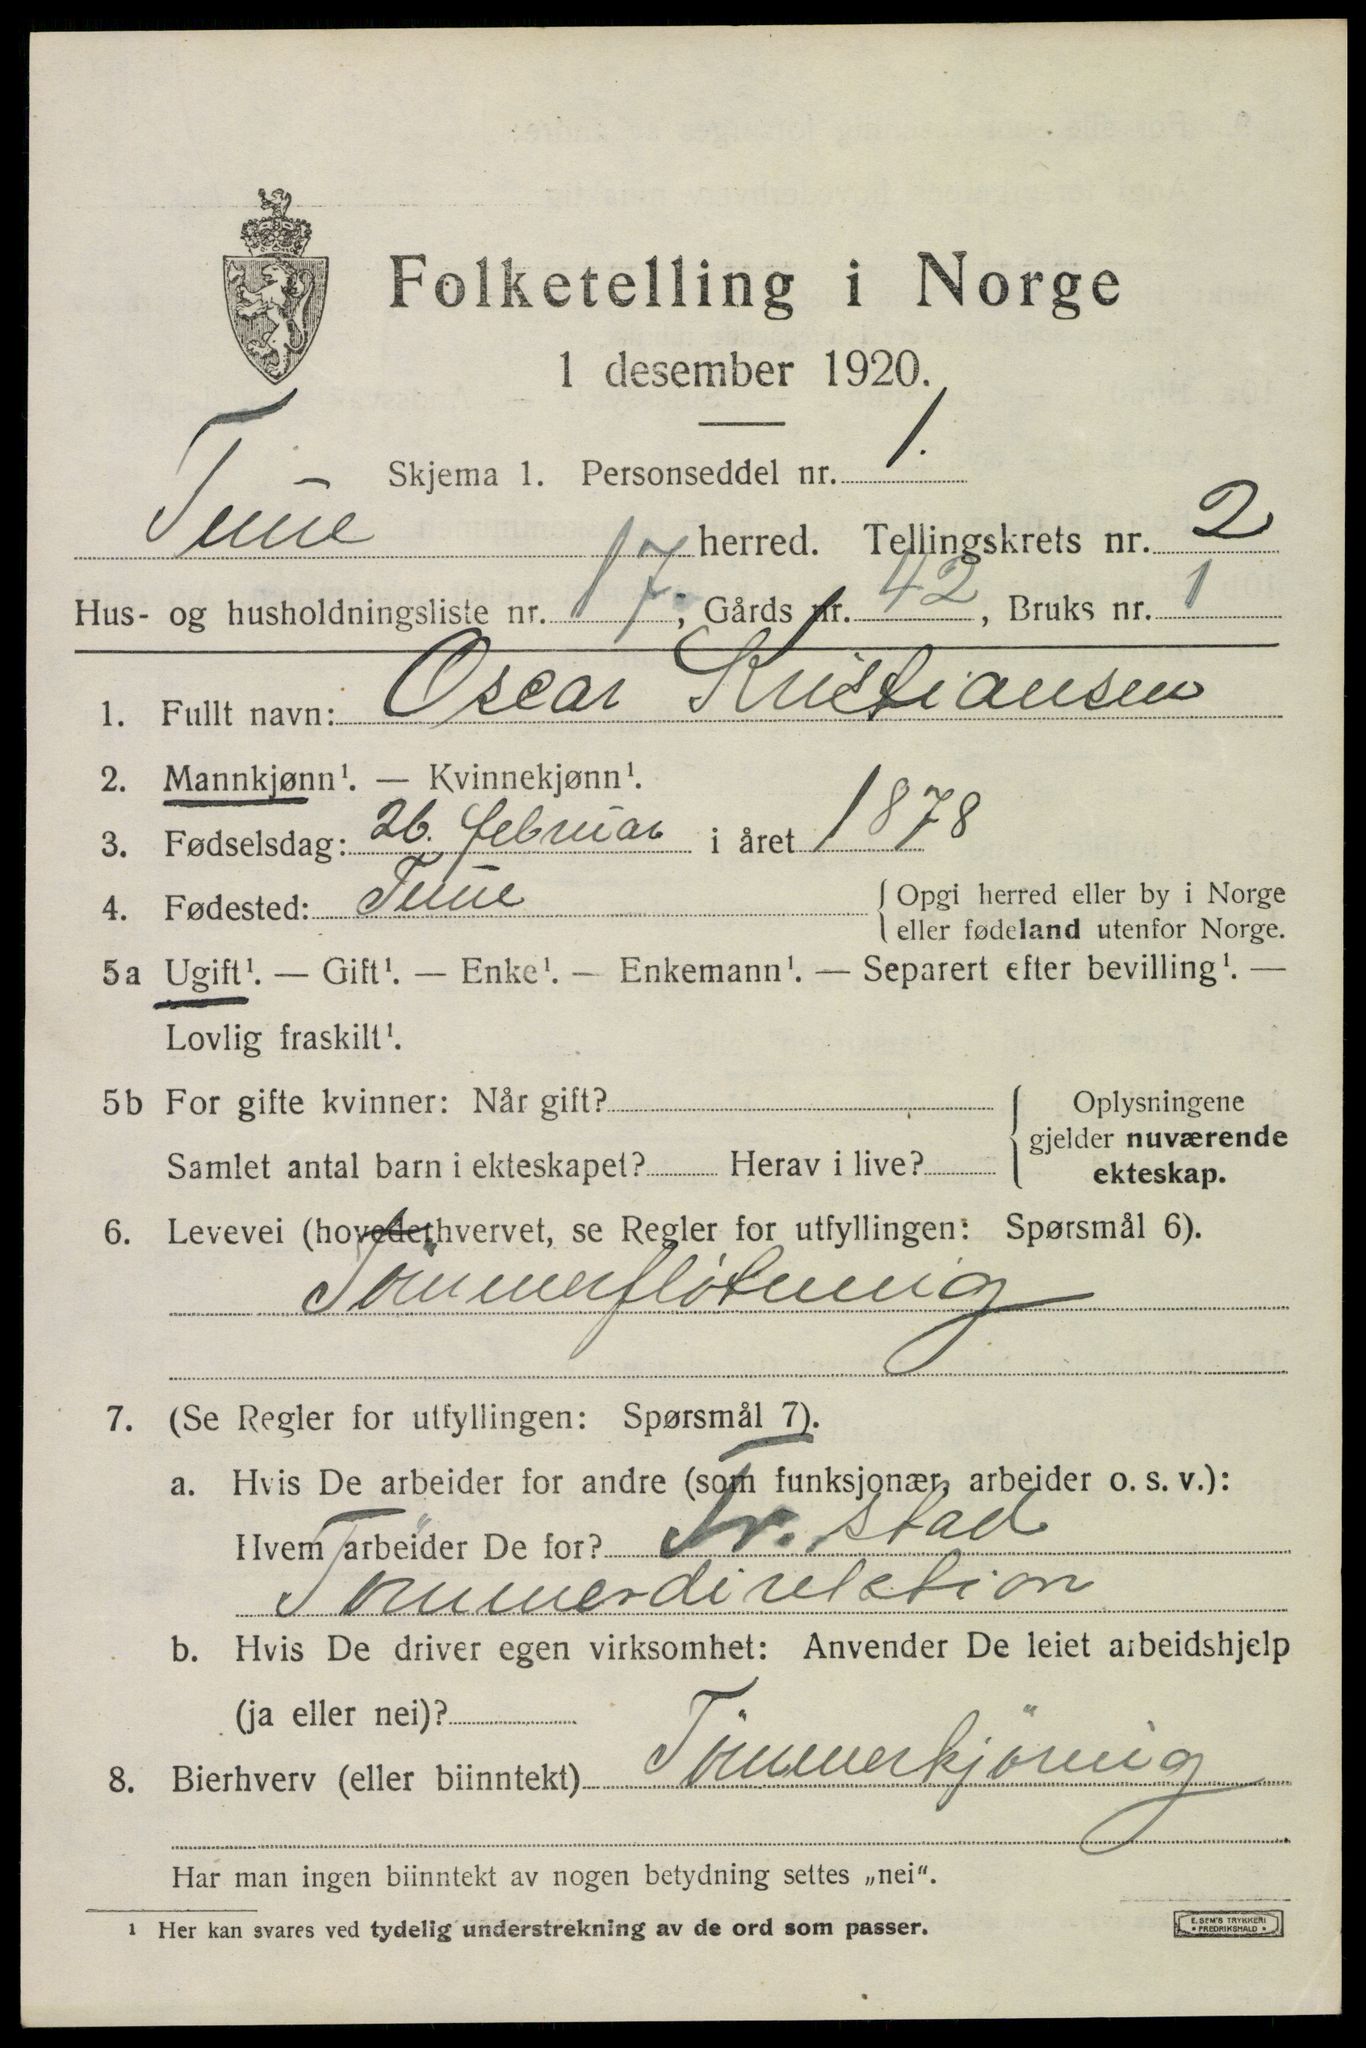 Folketelling i Norge
1 desember 1920.
Skjema 1. Personseddel nr. 1.
Tune herred. Tellingskrets nr. 2
Hus- og husholdningsliste nr. 17; Gårds nr. 42, Bruks nr. 1
1. Fullt navn: Oscar Kristiansen
2. Mannkjønn¹. — Kvinnekjønn¹.
3. Fødselsdag: 26. februar i året 1878
4. Fødested: Tune { Opgi herred eller by i Norge
eller fødeland utenfor Norge.
5a Ugift¹. — Gift¹. — Enke¹. — Enkemann¹. — Separert efter bevilling¹. —
Lovlig fraskilt¹.
5b For gifte kvinner: Når gift? { Oplysningene
gjelder nuværende
Samlet antal barn i ekteskapet? Herav i live? ekteskap.
6. Levevei (hovederhvervet, se Regler for utfyllingen: Spørsmål 6).
Tömmerflötning
7. (Se Regler for utfyllingen: Spørsmål 7).
a. Hvis De arbeider for andre (som funksjonær, arbeider o. s. v.):
Hvem arbeider De for? Fr.stad
Tömmerdirektion
b. Hvis De driver egen virksomhet: Anvender De leiet arbeidshjelp
(ja eller nei)?
8. Bierhverv (eller biinntekt) Tömmerkjöring
Har man ingen biinntekt av nogen betydning settes „nei“.
¹ Her kan svares ved tydelig understrekning av de ord som passer.
E. SEM'S TRYKKERI
• FREDRIKSHALD •